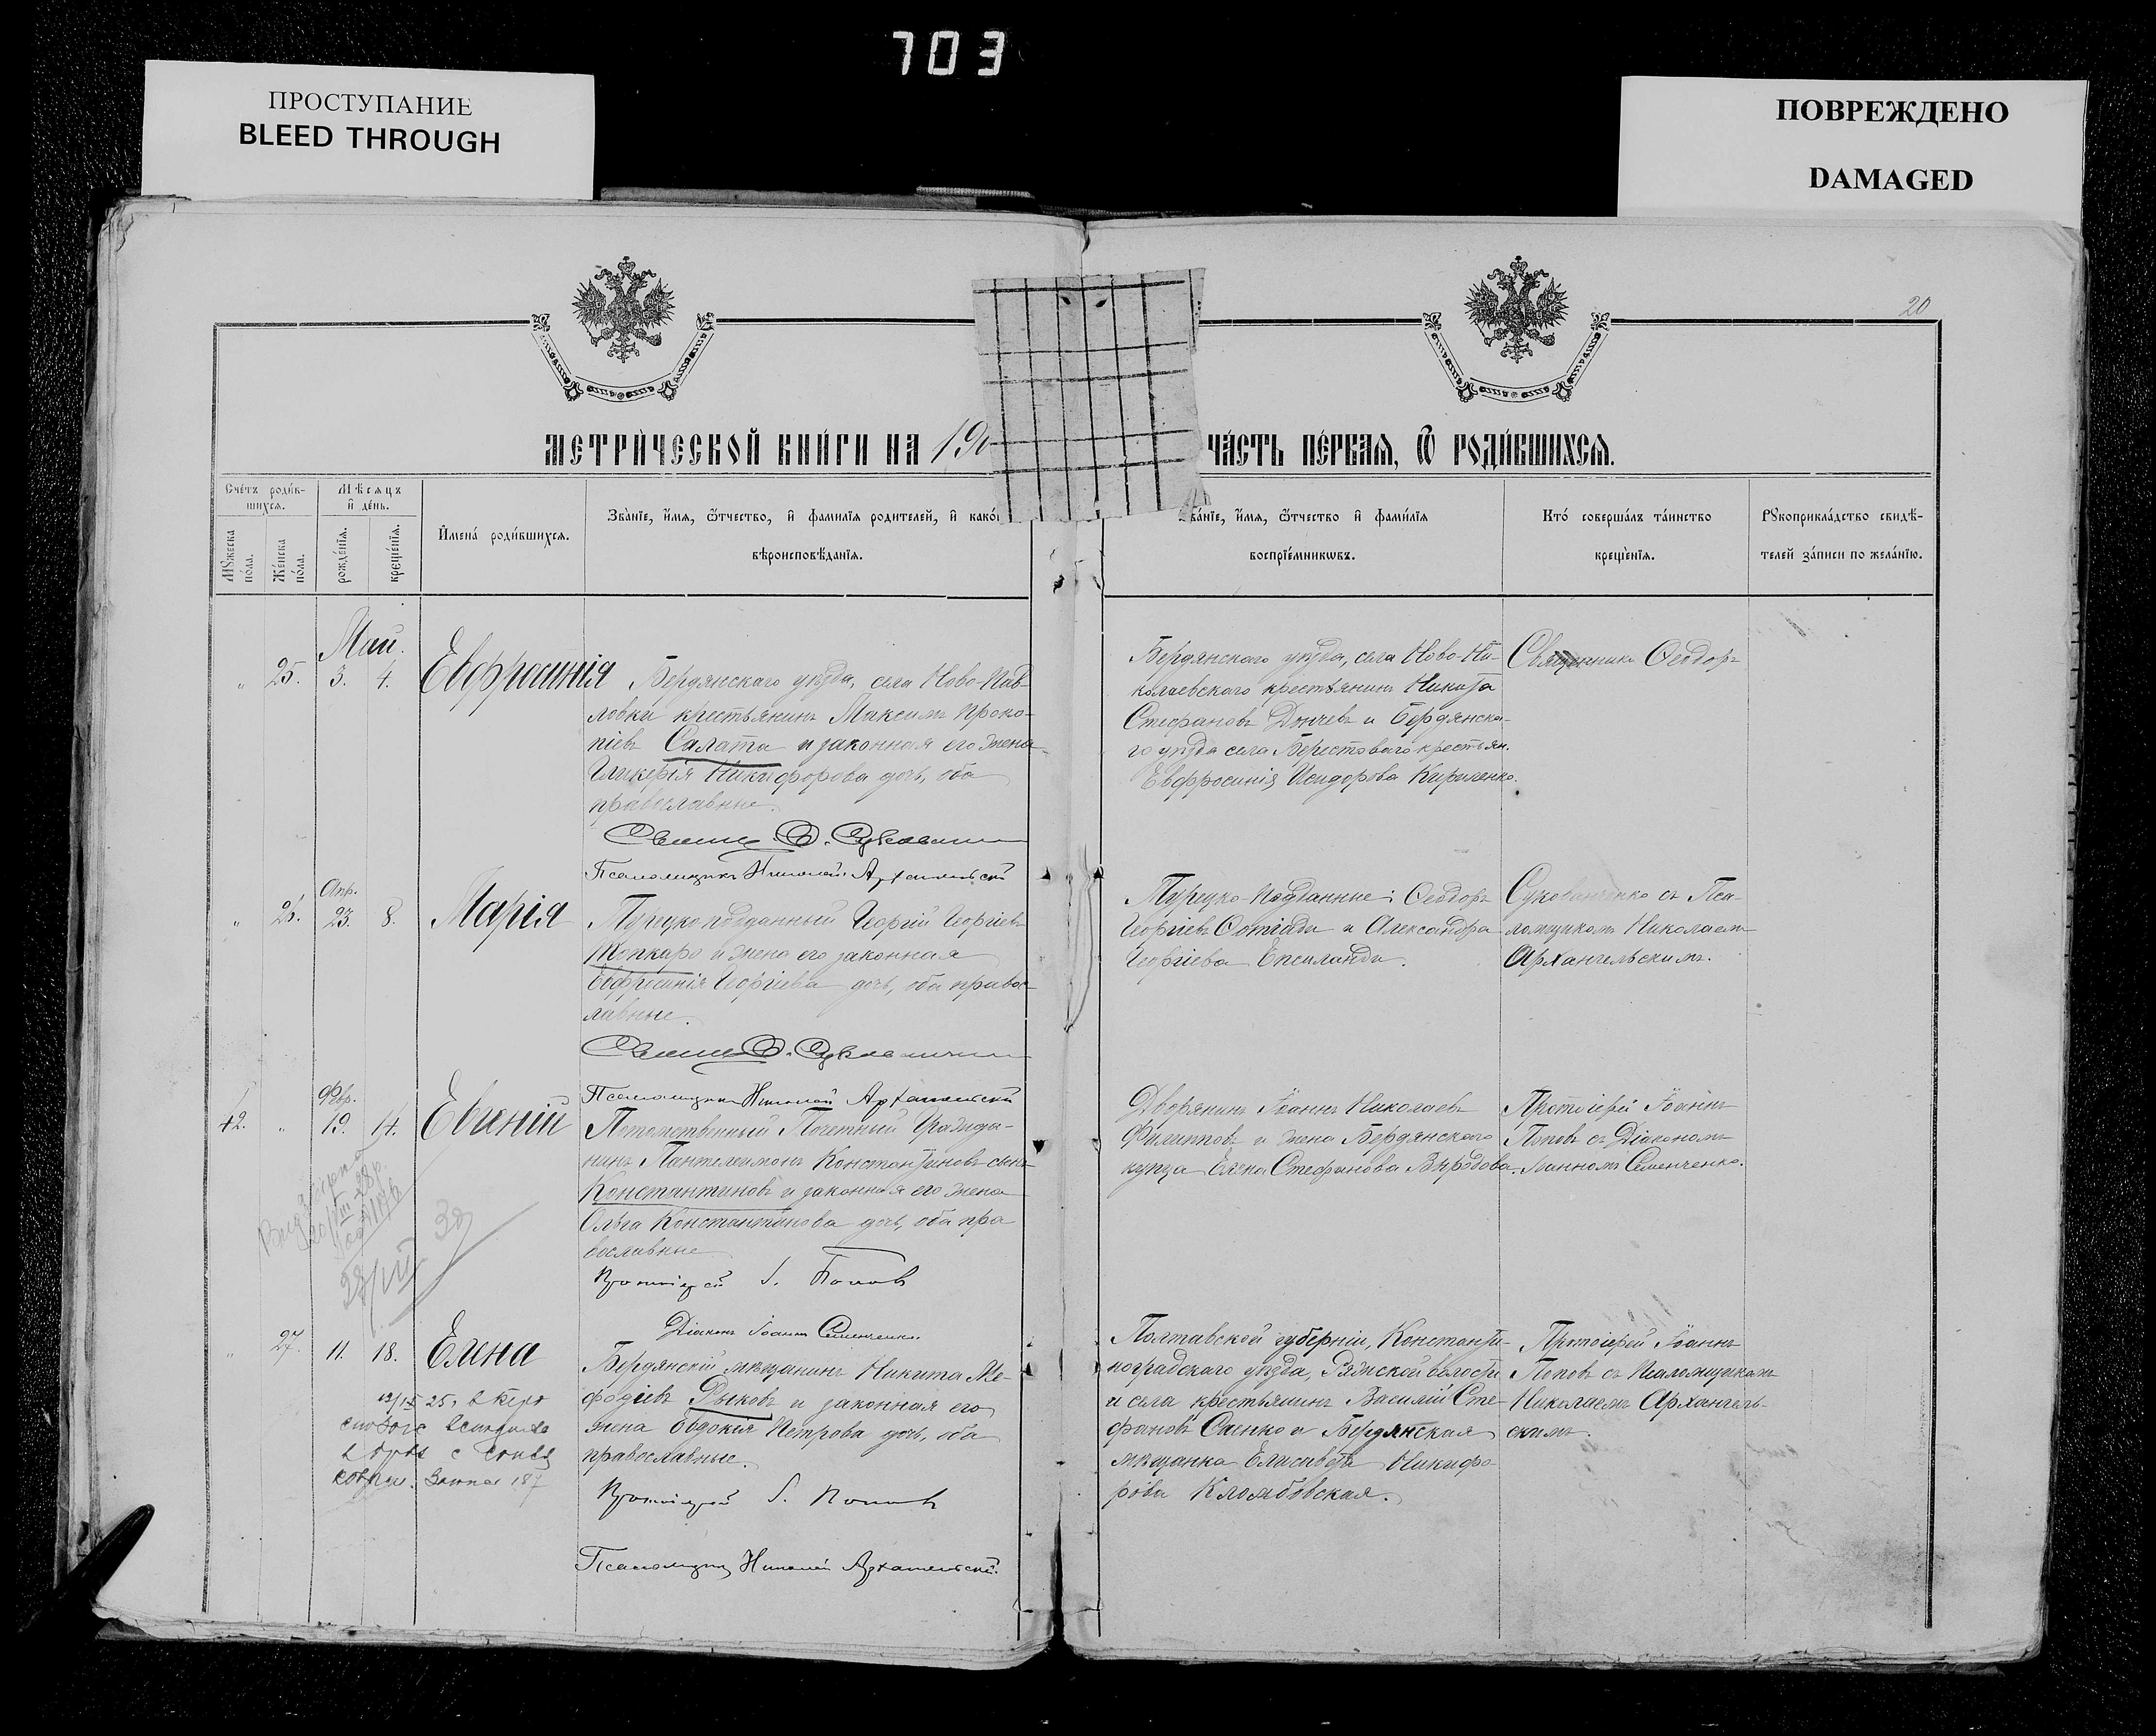 703
ПРОСТУПАНИЕ
BLEED THROUGH
ПОВРЕЖДЕНО
DAMAGED
20
МЕТРИ́ЧЕСКОЙ КНИ́ГИ НА 190
ЧА́СТЬ ПЕ́РВАЯ, Ѿ РОДИ́ВШИХСЯ.
Сче́тъ роди́в-
шихся.
Мѣсяцъ
и҆ де́нь.
Мꙋ́жеска
по́ла.
Же́нска
по́ла.
рожде́нїя.
креще́нїя.
И҆мена́ роди́вшихся.
Зва́нїе, и҆́мя, ѻ҆́тчество, и҆ фами́лїя роди́телей, и҆ како́
вѣроисповѣ́данїя.
ва́нїе, и҆́мя, ѻ҆́тчество и҆ фами́лїя
воспрїе́мникѡвъ.
Кто́ соверша́лъ та́инство
креще́нїя.
Рꙋкоприкла́дство свидѣ́-
телей за́писи по жела́нїю.
Май.
" 25. 3. 4. Евфросинія
Бердянскаго уѣзда, села Ново-Пав-
ловки крестьянинъ Максимъ Проко-
піевъ Салата и законная его жена
Гликерія Никифорова дочь, оба
православные.
Псаломщикъ Николай Архангельскій
Бердянскаго уѣзда, села Ново-Ни-
колаевскаго крестьянинъ Никита
Стефановъ Дончевъ и Бердянска-
го уѣзда села Берестоваго крестьян.
Евфросинія Исидорова Кириленко.
Священникъ Ѳеодоръ
Апр.
" 26. 23. 8. Марія
Турецко подданный Георгій Георгіевъ
Топкаро и жена его законная
Евфросинія Георгіева дочь, оба право-
лавные.
Псаломщикъ Николай Архангельскій
Турецко-Подданные: Ѳеодоръ
Георгіевъ Сотіади и Александра
Георгіева Епсиланди.
съ Пса-
ломщикомъ Николаемъ
Архангельскимъ.
Февр.
42. " 19. 14. Евгеній
Потомственный Почетный Гражда-
нинъ Пантелеимонъ Константиновъ сынъ
Константиновъ и законная его жена
Ольга Константинова дочь, оба пра
вославные
Протоіерей І. Поповъ
Діаконъ Іоаннъ Семенченко.
Дворянинъ Іоаннъ Николаевъ
Филипповъ и жена Бердянскаго
купца Елена Стефанова Выродова.
Протоіерей Іоаннъ
Поповъ съ Діакономъ
Іоанномъ Семенченко.
30
" 27. 11. 18. Елена
Бердянскій мѣщанинъ Никита Ме-
фодіевъ Рыковъ и законная его
жена Евдокія Петрова дочь, оба
православные.
Протоіерей І. Поповъ
Псаломщикъ Николай Архангельскій.
Полтавской губерніи, Константи-
ноградскаго уѣзда, Ряжской волости
и села крестьянинъ Василій Сте-
фановъ Саенко и Бердянская
мѣщанка Елисавета Никифо-
рова Кломбовская.
Протоіерей Іоаннъ
Поповъ съ Псаломщикомъ
Николаемъ Архангель-
скимъ.